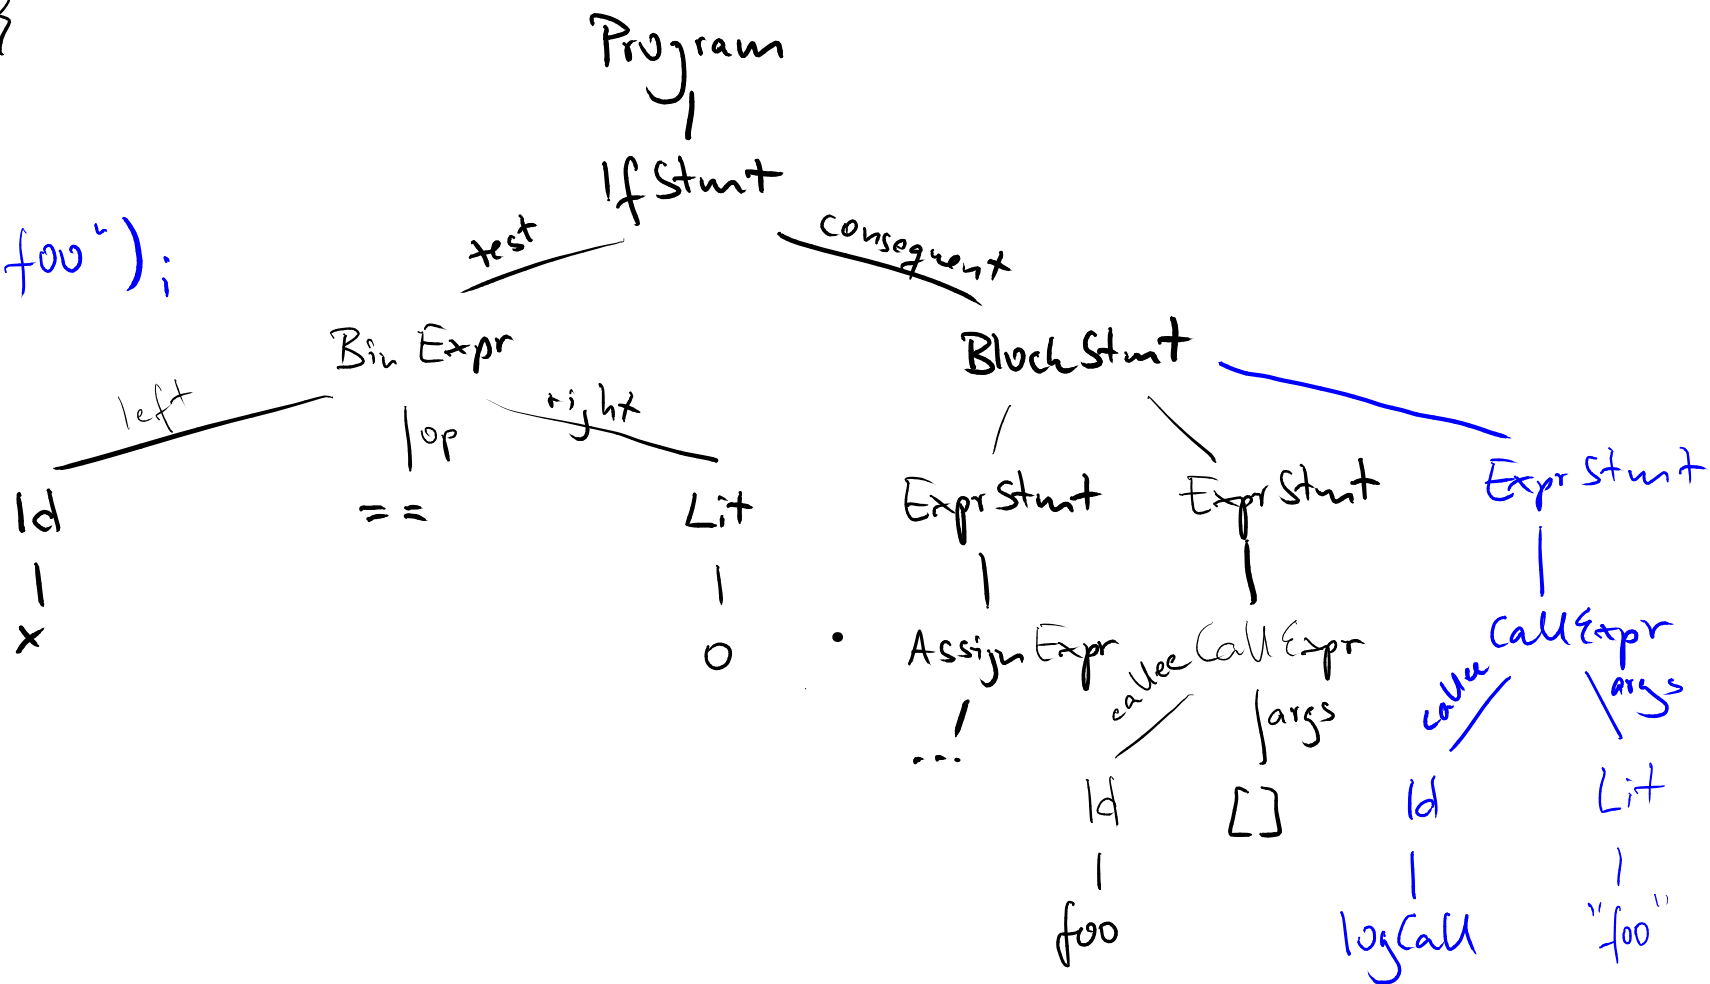 }
Program
IfStmt
test consequent
foo");
BinExpr BlockStmt
left op right
Id == Lit ExprStmt ExprStmt ExprStmt
x 0 AssignExpr CallExpr CallExpr
callee args callee args
...
Id [] Id Lit
foo logCall "foo"